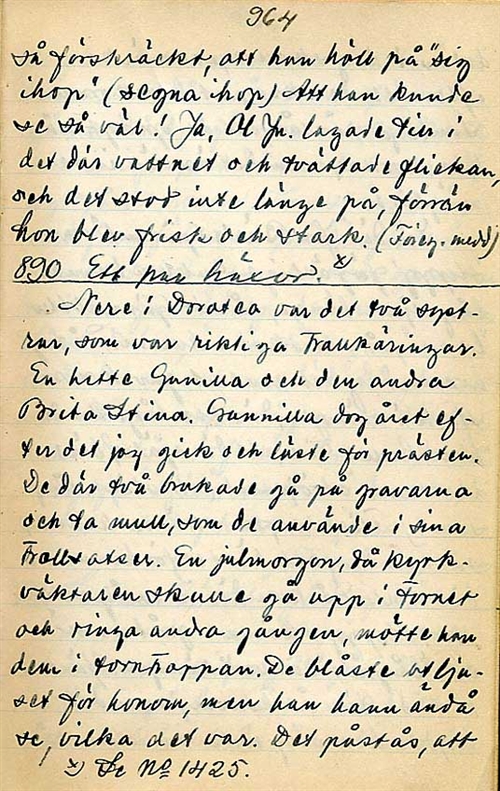 964
så förskräckt, att han höll på "sig
ihop" (segna ihop) Att han kunde
se så väl! Ja, Ol Jn. lagade till i
det där vattnet och tvättade flickan,
och det stod inte länge på, förrän
hon blev frisk och stark. (Föreg. medd)
890 Ett par häxor. x)
Nere i Dorotea var det två syst-
rar, som var riktiga Trollkäringar.
En hette Gunilla och den andra
Brita Stina. Gunnilla dog året ef-
ter det jag gick och läste för prästen.
De där två brukade gå på gravarna
och ta mull, som de använde i sina
Trollsatser. En julmorgon, då kyrk-
väktaren skulle gå upp i Tornet
och ringa andra gången, mötte han
dem i torntrappan. De blåste ut lju-
set för honom, men han hann ändå
se, vilka det var. Det påstås, att
x) Se No 1425.